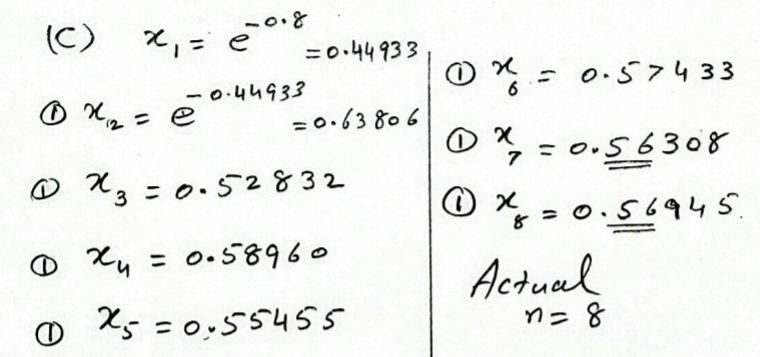 (C) x₁ = e^-0.8 = 0.44933
① x₂ = e^-0.44933 = 0.63806
① x₃ = 0.52832
① x₄ = 0.58960
① x₅ = 0.55455
① x₆ = 0.57433
① x₇ = 0.56308
① x₈ = 0.56945.
Actual
n = 8